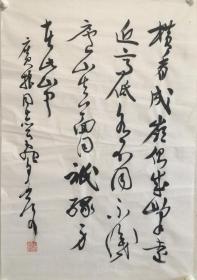 横看成岭侧成峰远
近高低各不同不識
庐山真面目祇缘身
在此山中
同志